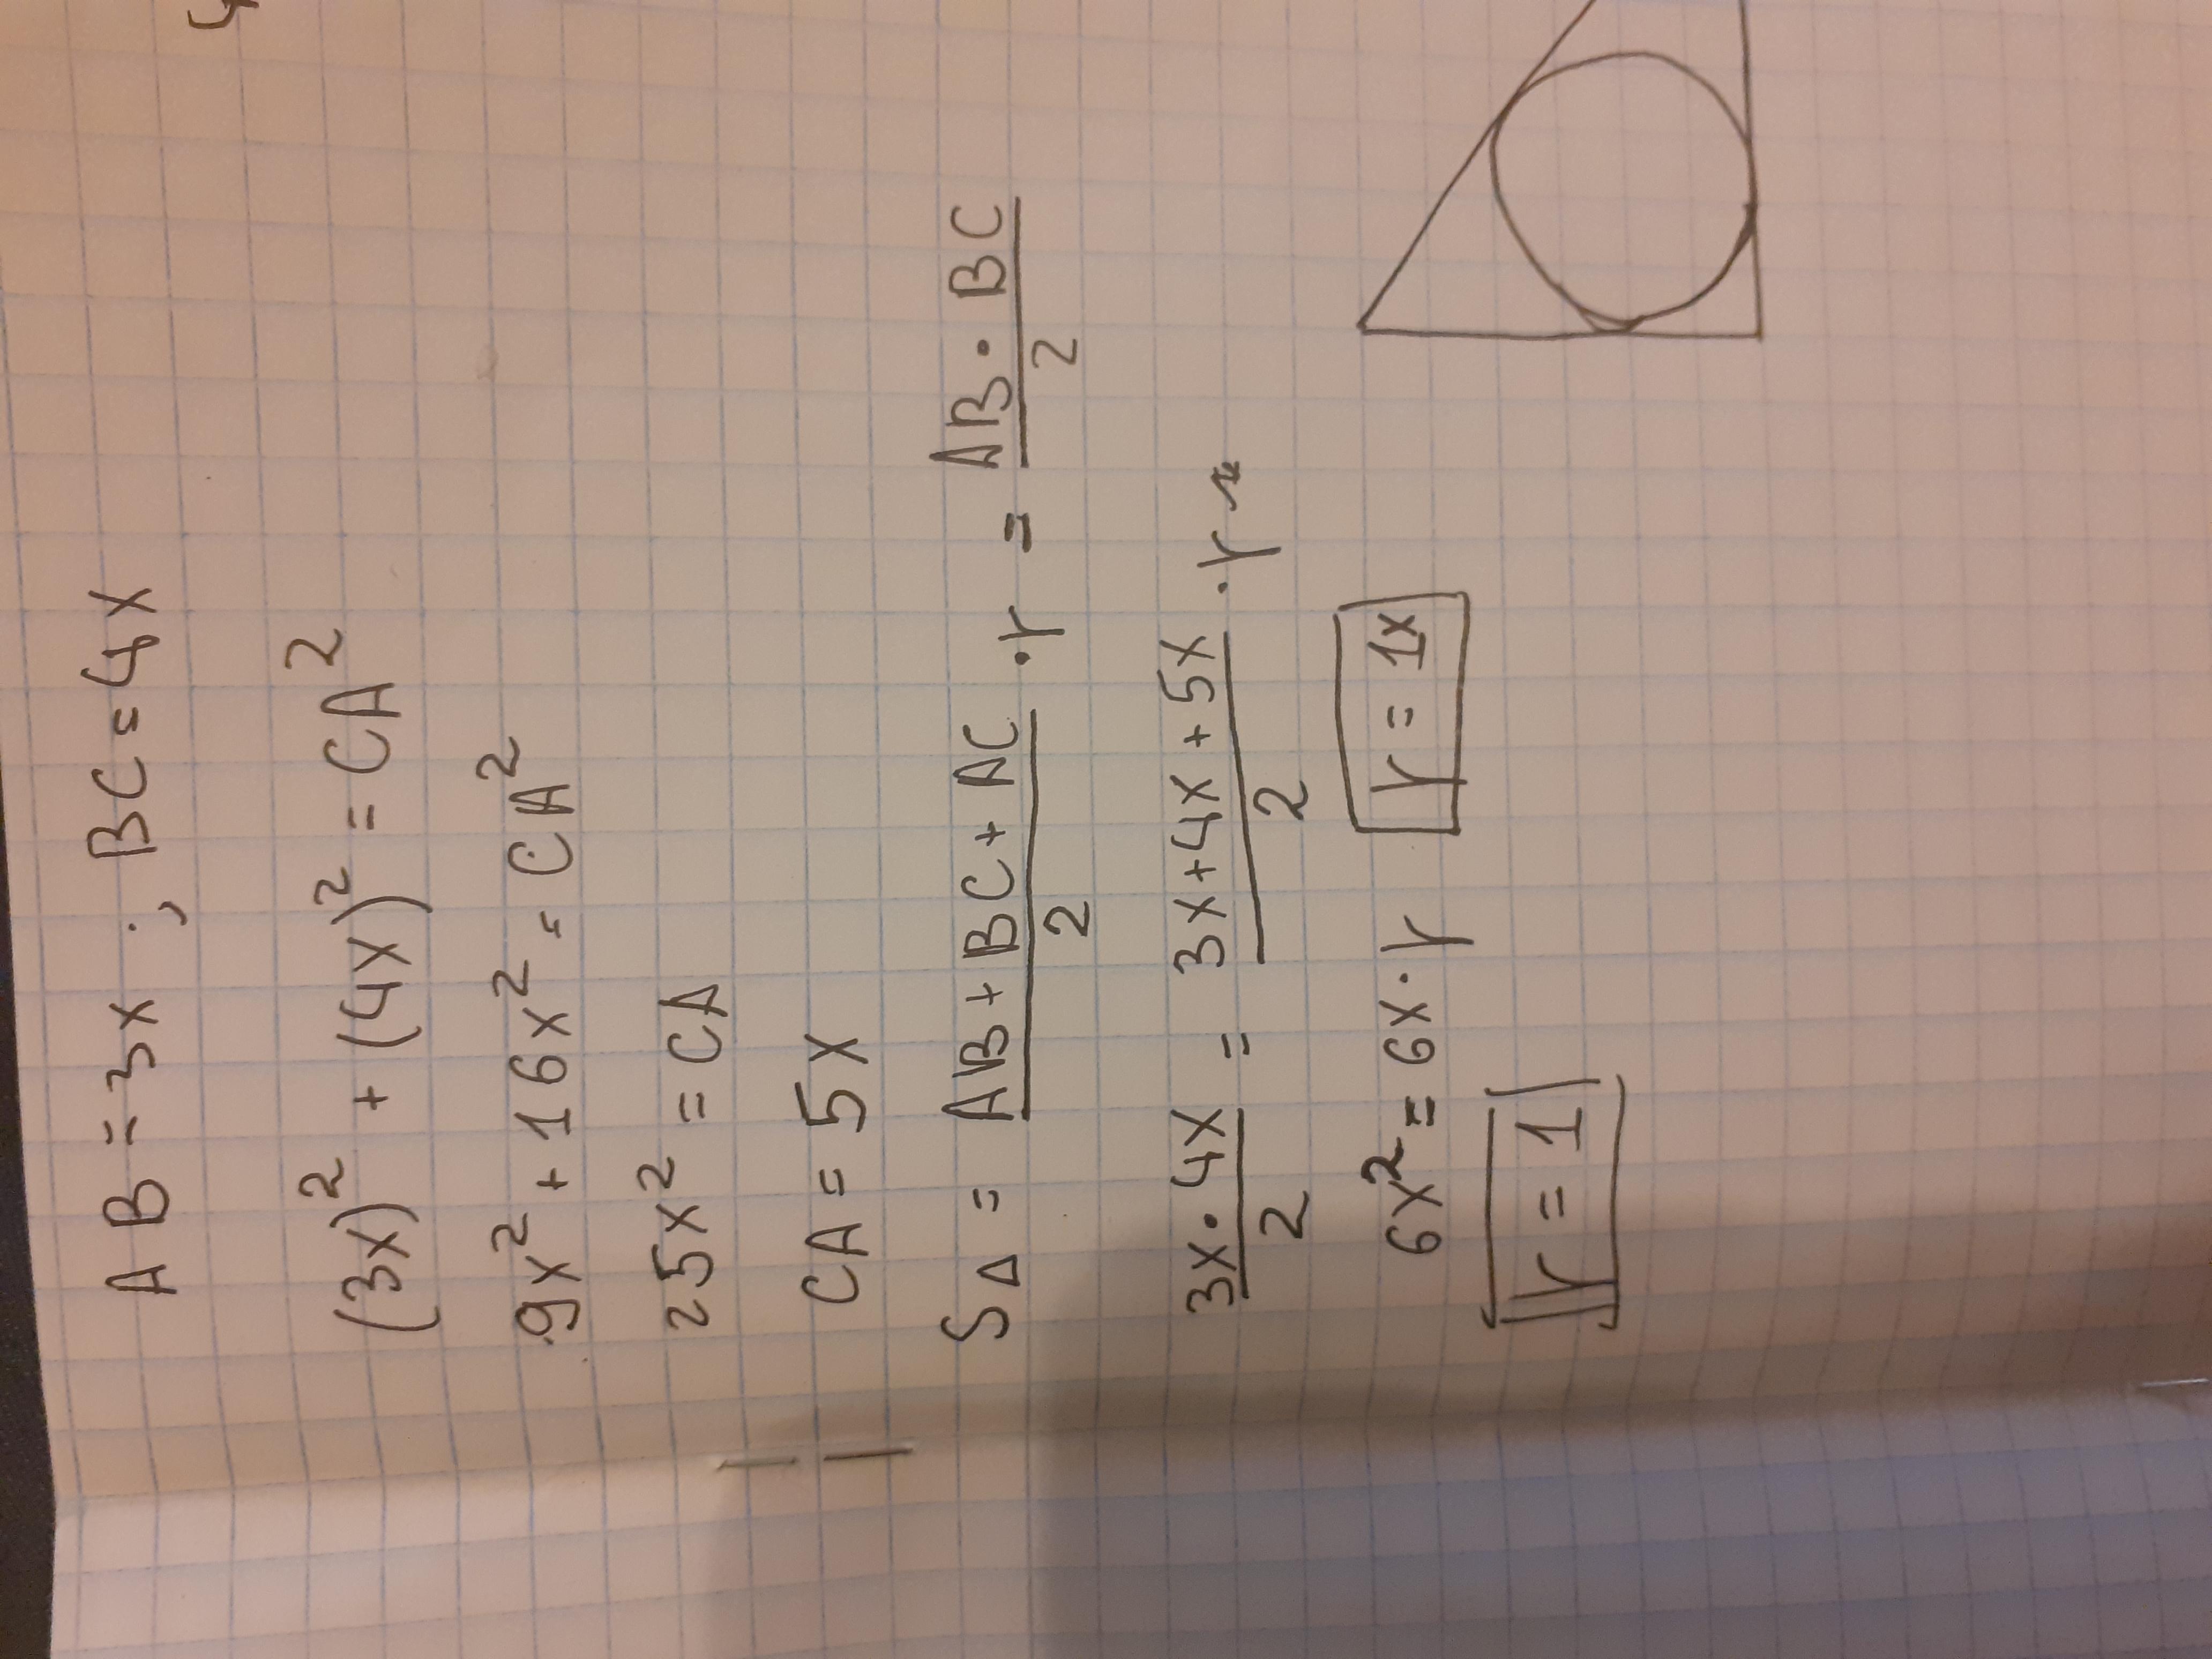 AB = 3x ; BC = 4x
(3x)² + (4x)² = CA²
9x² + 16x² = CA²
25x² = CA
CA = 5x
S△ = (AB + BC + AC)/2 · r = (AB · BC)/2
(3x · 4x)/2 = (3x + 4x + 5x)/2 · r
6x² = 6x · r r = 1x
r = 1